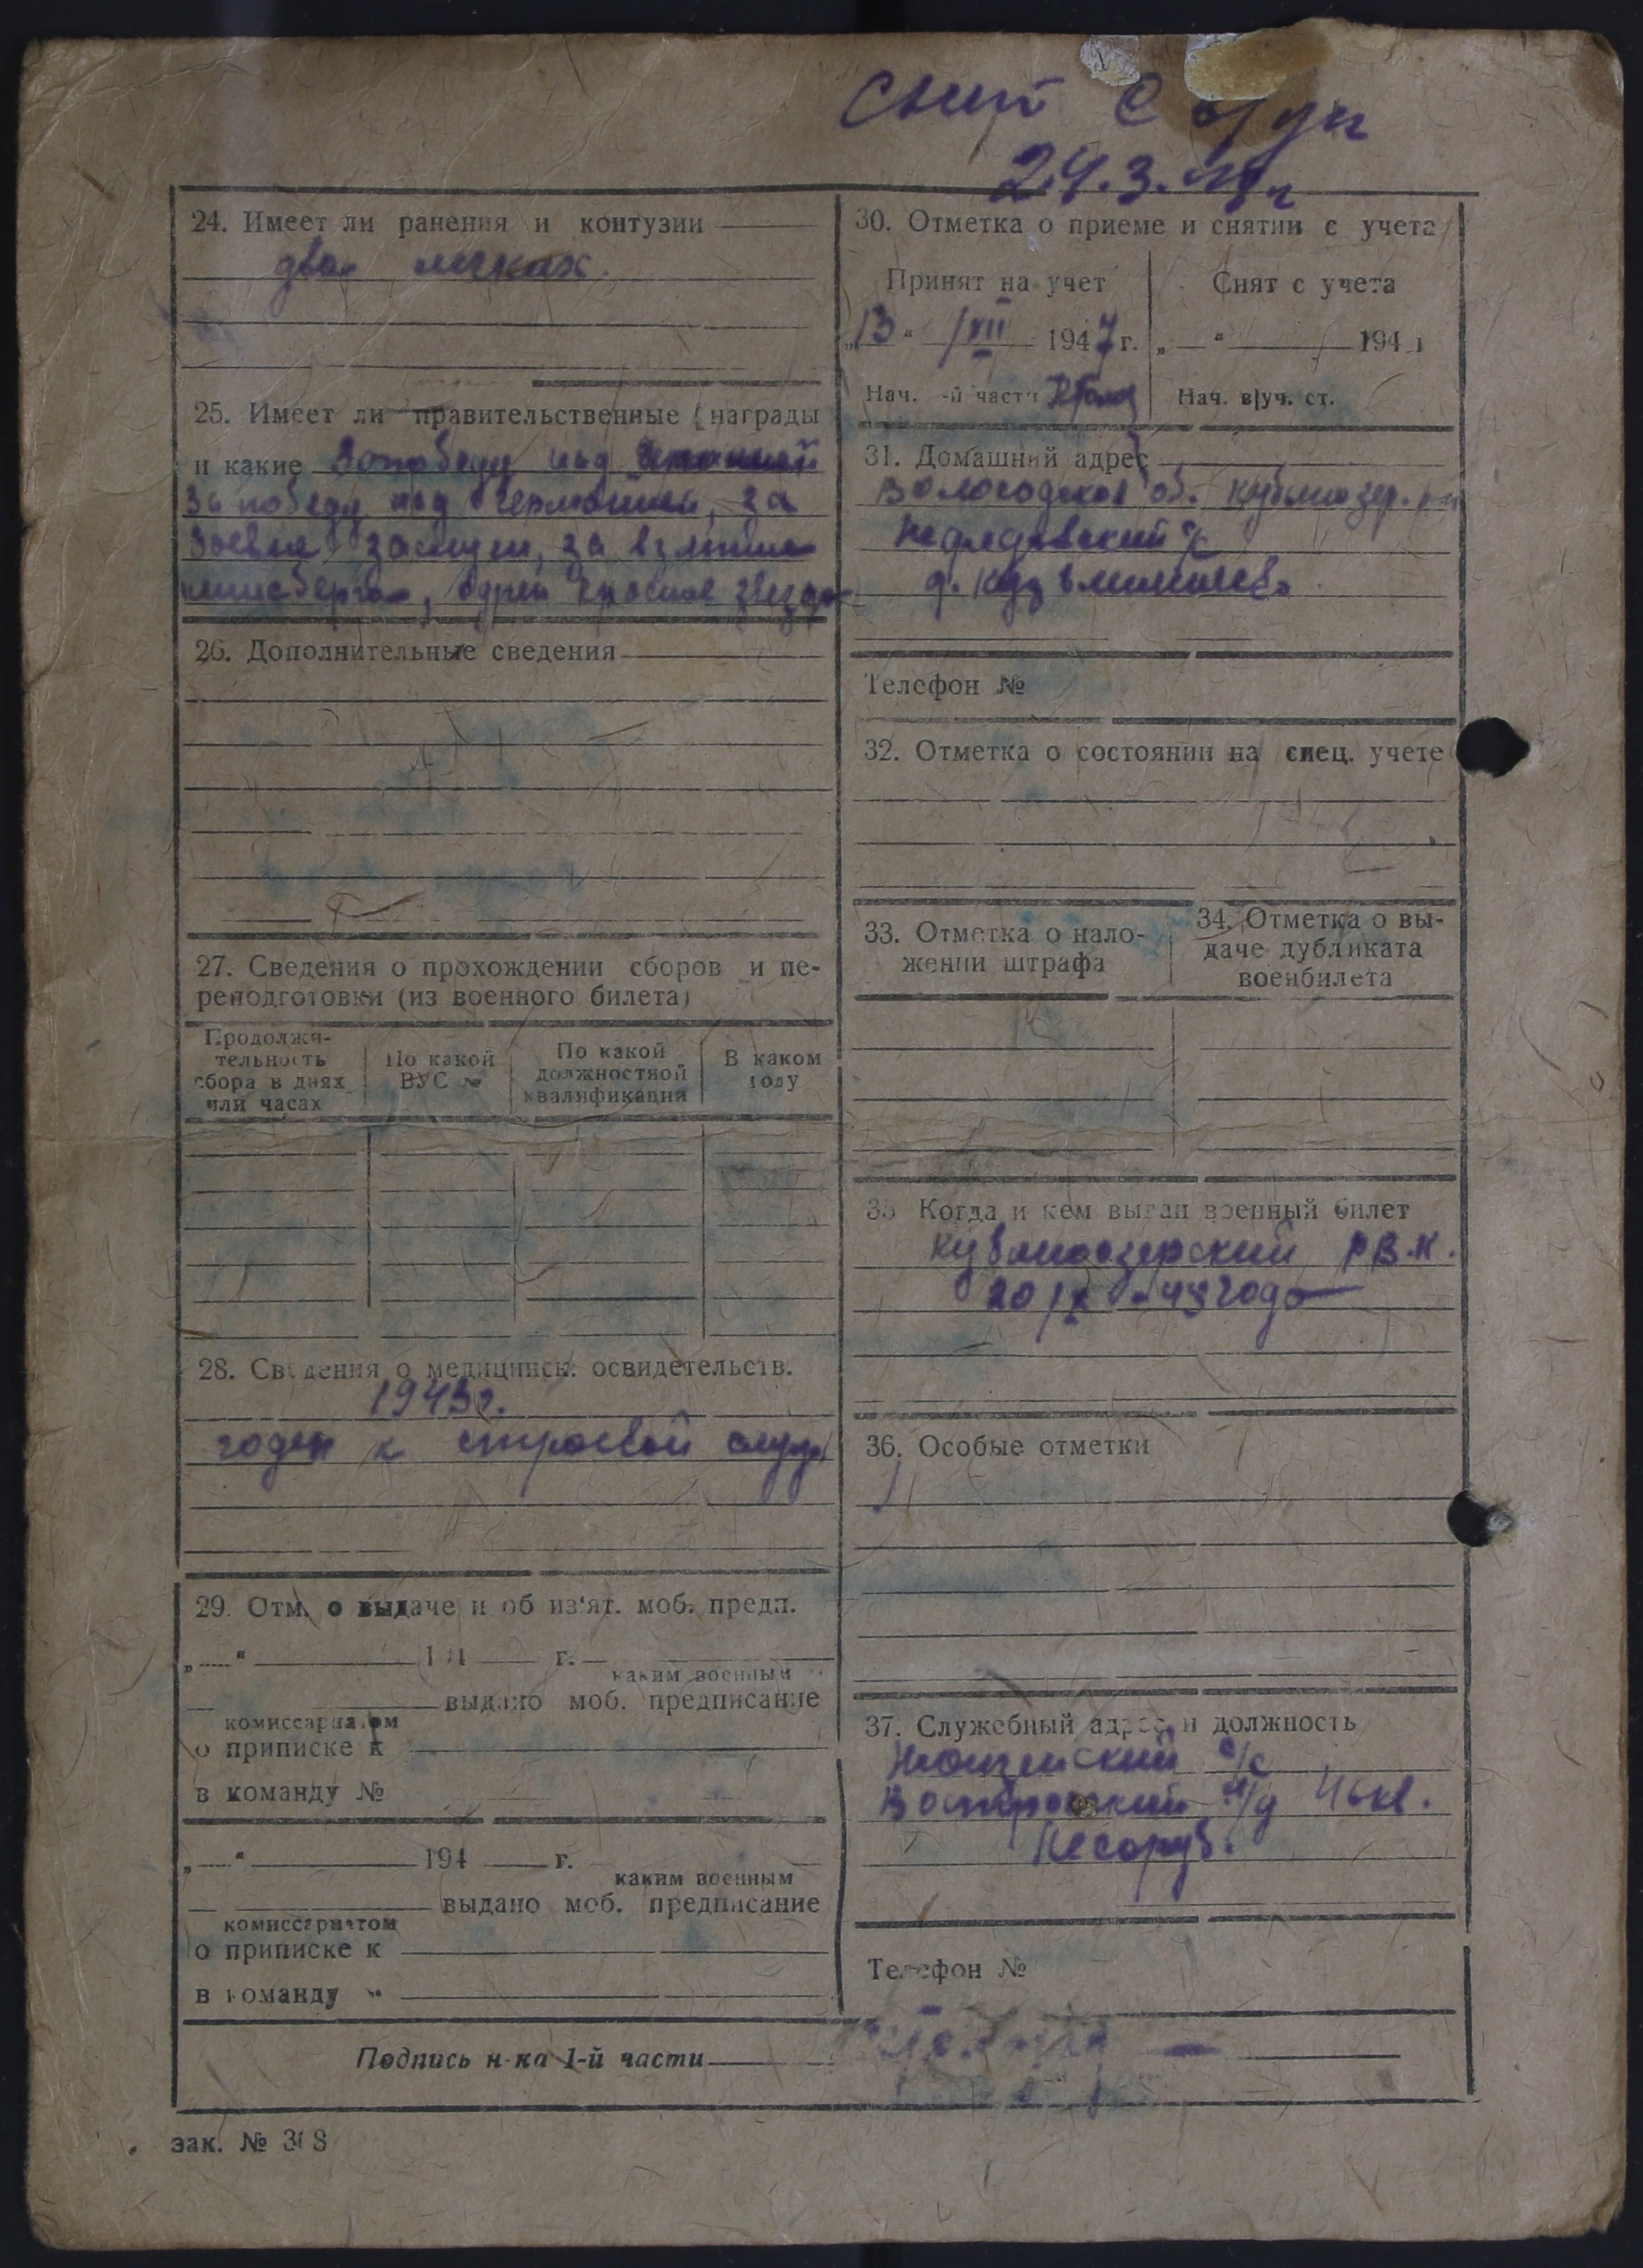 24.3.
24. Имеет ли ранения и контузии
два легких.
25. Имеет ли правительственные награды
и какие За победу над Японией
За победу над Германией, за
боевые заслуги, за взятие
Кенисберга, орден красное звезда
26. Дополнительные сведения
27. Сведения о прохождении сборов и пе-
реподготовки (из военного билета)
Продолжи-
тельность
сбора в днях
или часах
По какой
ВУС №
По какой
должностной
квалификации
В каком
году
28. Сведения о медицинск. освидетельств.
194 г.
годен к строевой служ
29. Отм. о выдаче и об из'ят. моб. предп.
„ “ 194 г.
каким военным
выдано моб. предписание
комиссариатом
о приписке к
в команду №
„ “ 194 г.
каким военным
выдано моб. предписание
комиссариатом
о приписке к
в команду „
30. Отметка о приеме и снятии с учета
Принят на учет
„13 “ /XII 1947 г.
Нач. -й части
Снят с учета
„ “ 194 г
Нач. в|уч. ст.
31. Домашний адрес
Вологодская об. Кубиноозер. р-н
Нефедовский с/с
д.
Телефон №
32. Отметка о состоянии на спец. учете
33. Отметка о нало-
жении штрафа
34. Отметка о вы-
даче дубликата
военбилета
35 Когда и кем выдан военный билет
Кубиноозерский Р.В.К.
20/ года
36. Особые отметки
37. Служебный адрес и должность
с/с
Востровский м/д 46 кв.
Лесоруб.
Телефон №
Подпись н-ка 1-й части
зак. №